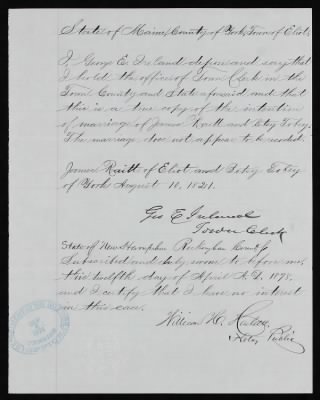 State of Maine, County of York, Town of Eliot.
I George E. Ireland depose and say that
I hold the office of Town Clerk in the
Town County and State aforesaid, and that
this is a true copy of the intention
of marriage of James Raitt and Betsy Tobey.
The marriage does not appear to be recorded.
James Raitt of Eliot and Betsy Tobey
of York August 10, 1821.
Geo E Ireland
Town Clerk
State of New Hampshire Rockingham County
Subscribed and duly sworn to before me,
this twelfth day of April A.D. 1878,
and I certify that I have no interest
in this case.
William H.
Notary Public